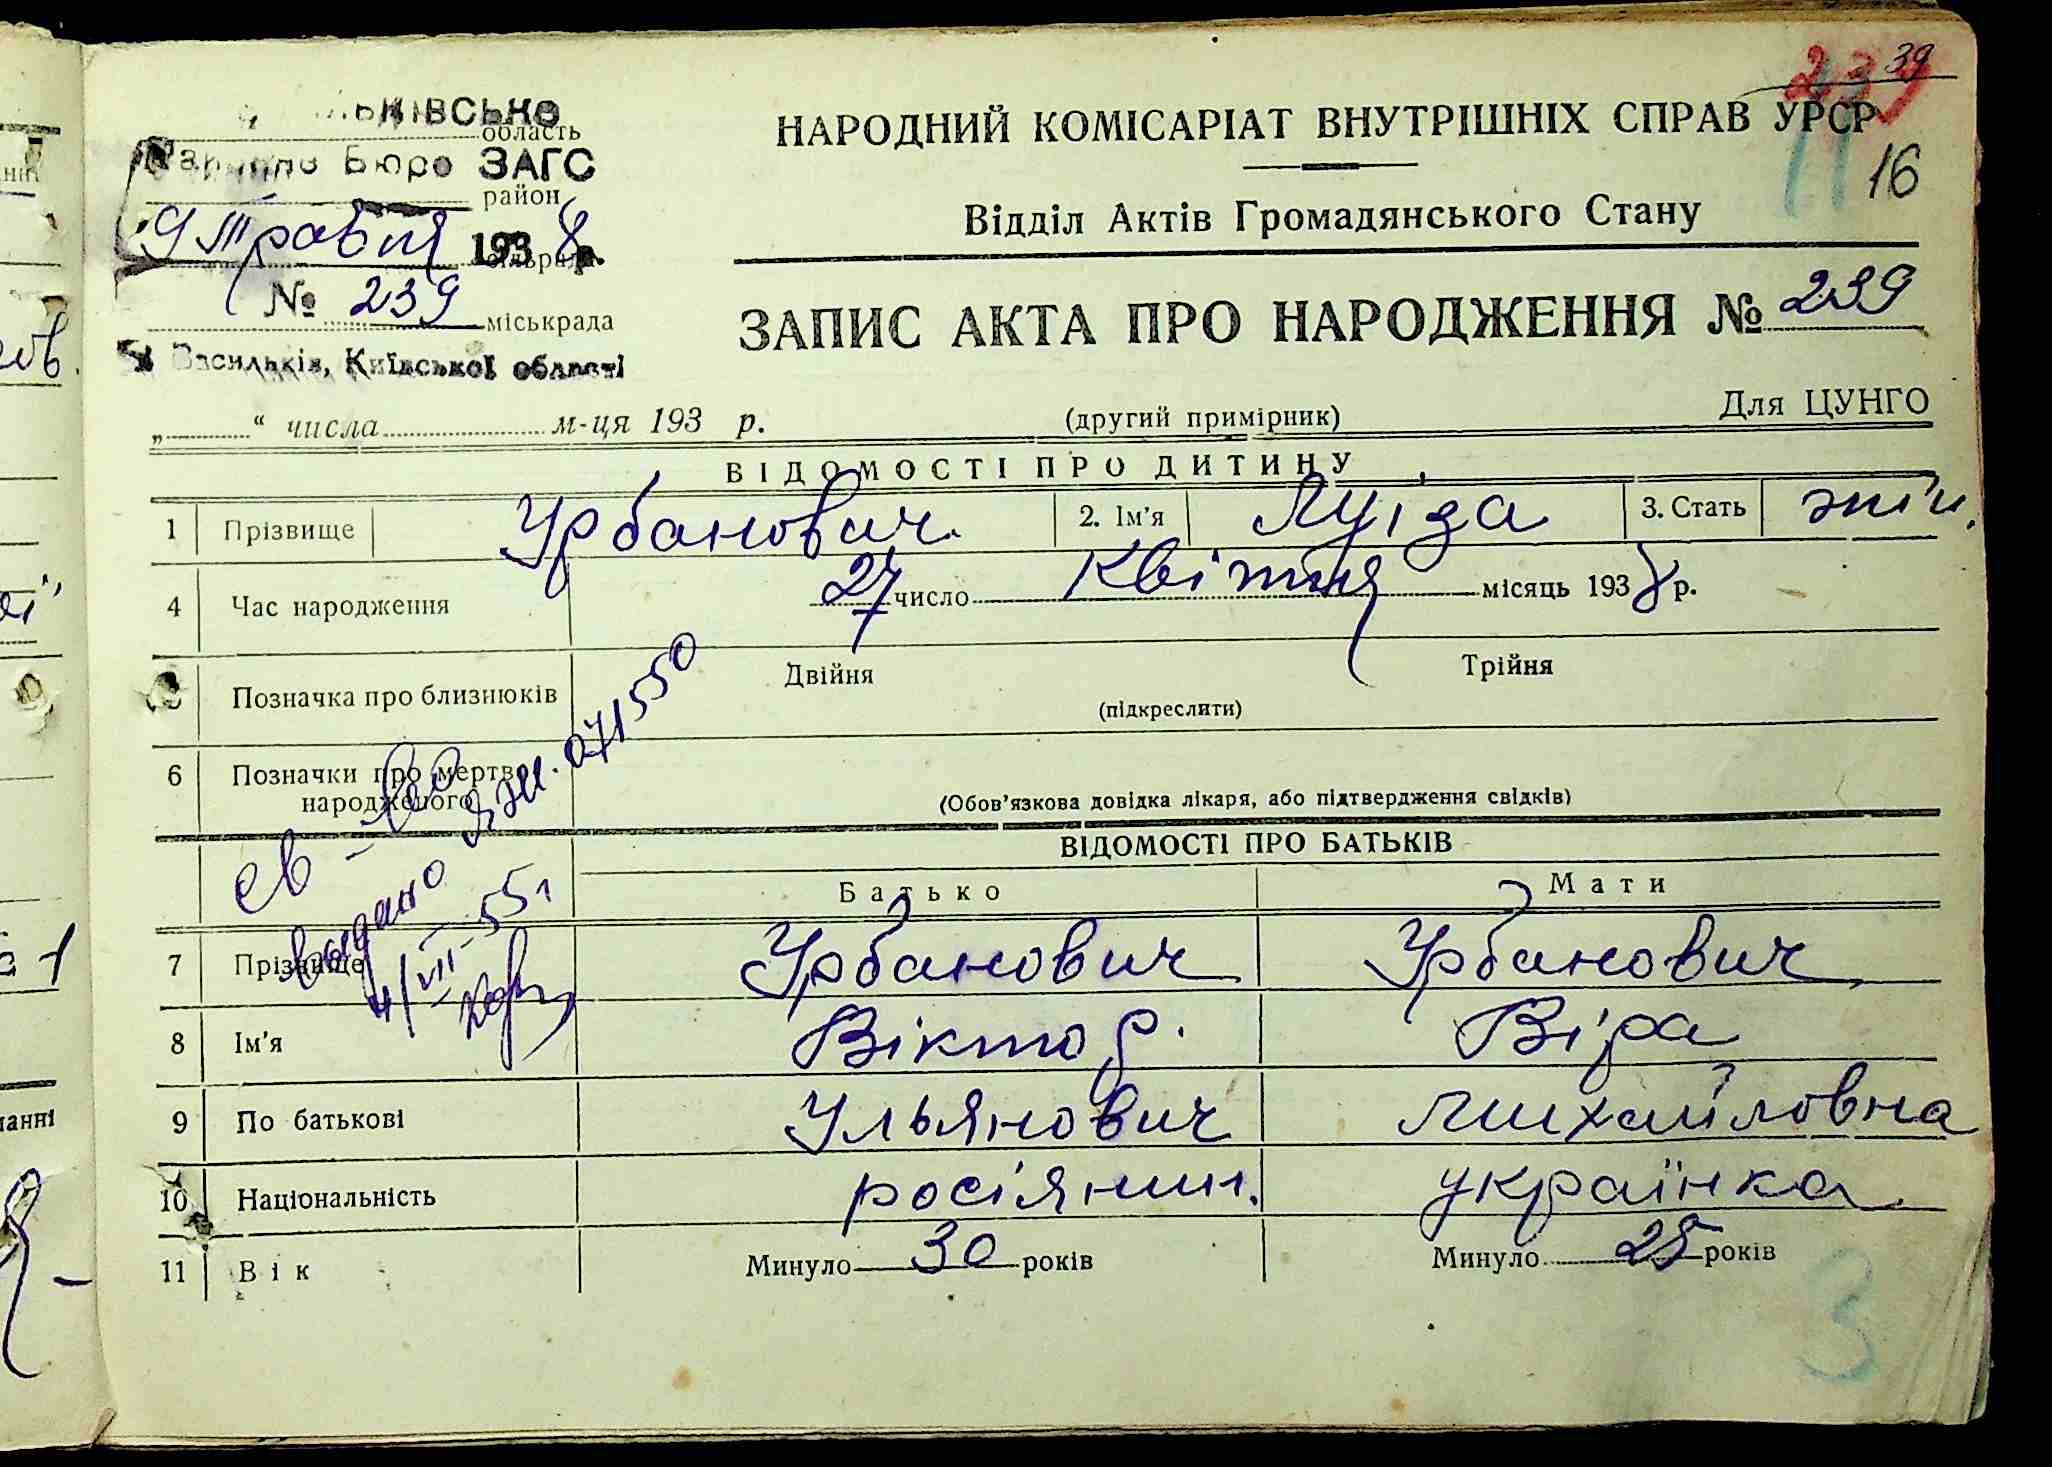 239 39
ЬКІВСЬКЕ
область
НАРОДНИЙ КОМІСАРІАТ ВНУТРІШНІХ СПРАВ УРСР
Бюро ЗАГС
район
11 16
Відділ Актів Громадянського Стану
9 травня 1938 р.
сільрада
№ 239
міськрада
ЗАПИС АКТА ПРО НАРОДЖЕННЯ № 239
м. Васильків, Київської області
„ “ числа м-ця 193 р.
(другий примірник)
Для ЦУНГО
ВІДОМОСТІ ПРО ДИТИНУ
1 Прізвище Урбанович 2. Ім'я Луіза 3. Стать жін.
4 Час народження 27 число Квітня місяць 1938 р.
Позначка про близнюків Двійня Трійня
(підкреслити)
6 Позначки про мертвонародженого
(Обов'язкова довідка лікаря, або підтвердження свідків)
св-во
ЯЖ. 071550
выдано
4/VII-55г
ВІДОМОСТІ ПРО БАТЬКІВ
Батько Мати
7 Прізвище Урбанович Урбанович
8 Ім'я Віктор. Віра
9 По батькові Ульянович Михайловна
10 Національність росіянин. українка
11 Вік Минуло 30 років Минуло 28 років
3